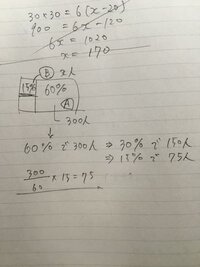 30×30 = 6(x-20)
900 = 6x - 120
6x = 1020
x = 170
B x人
15% 60%
A
300人
↓
60%で300人 ⇒ 30%で150人
⇒ 15%で75人
300/60 × 15 = 75